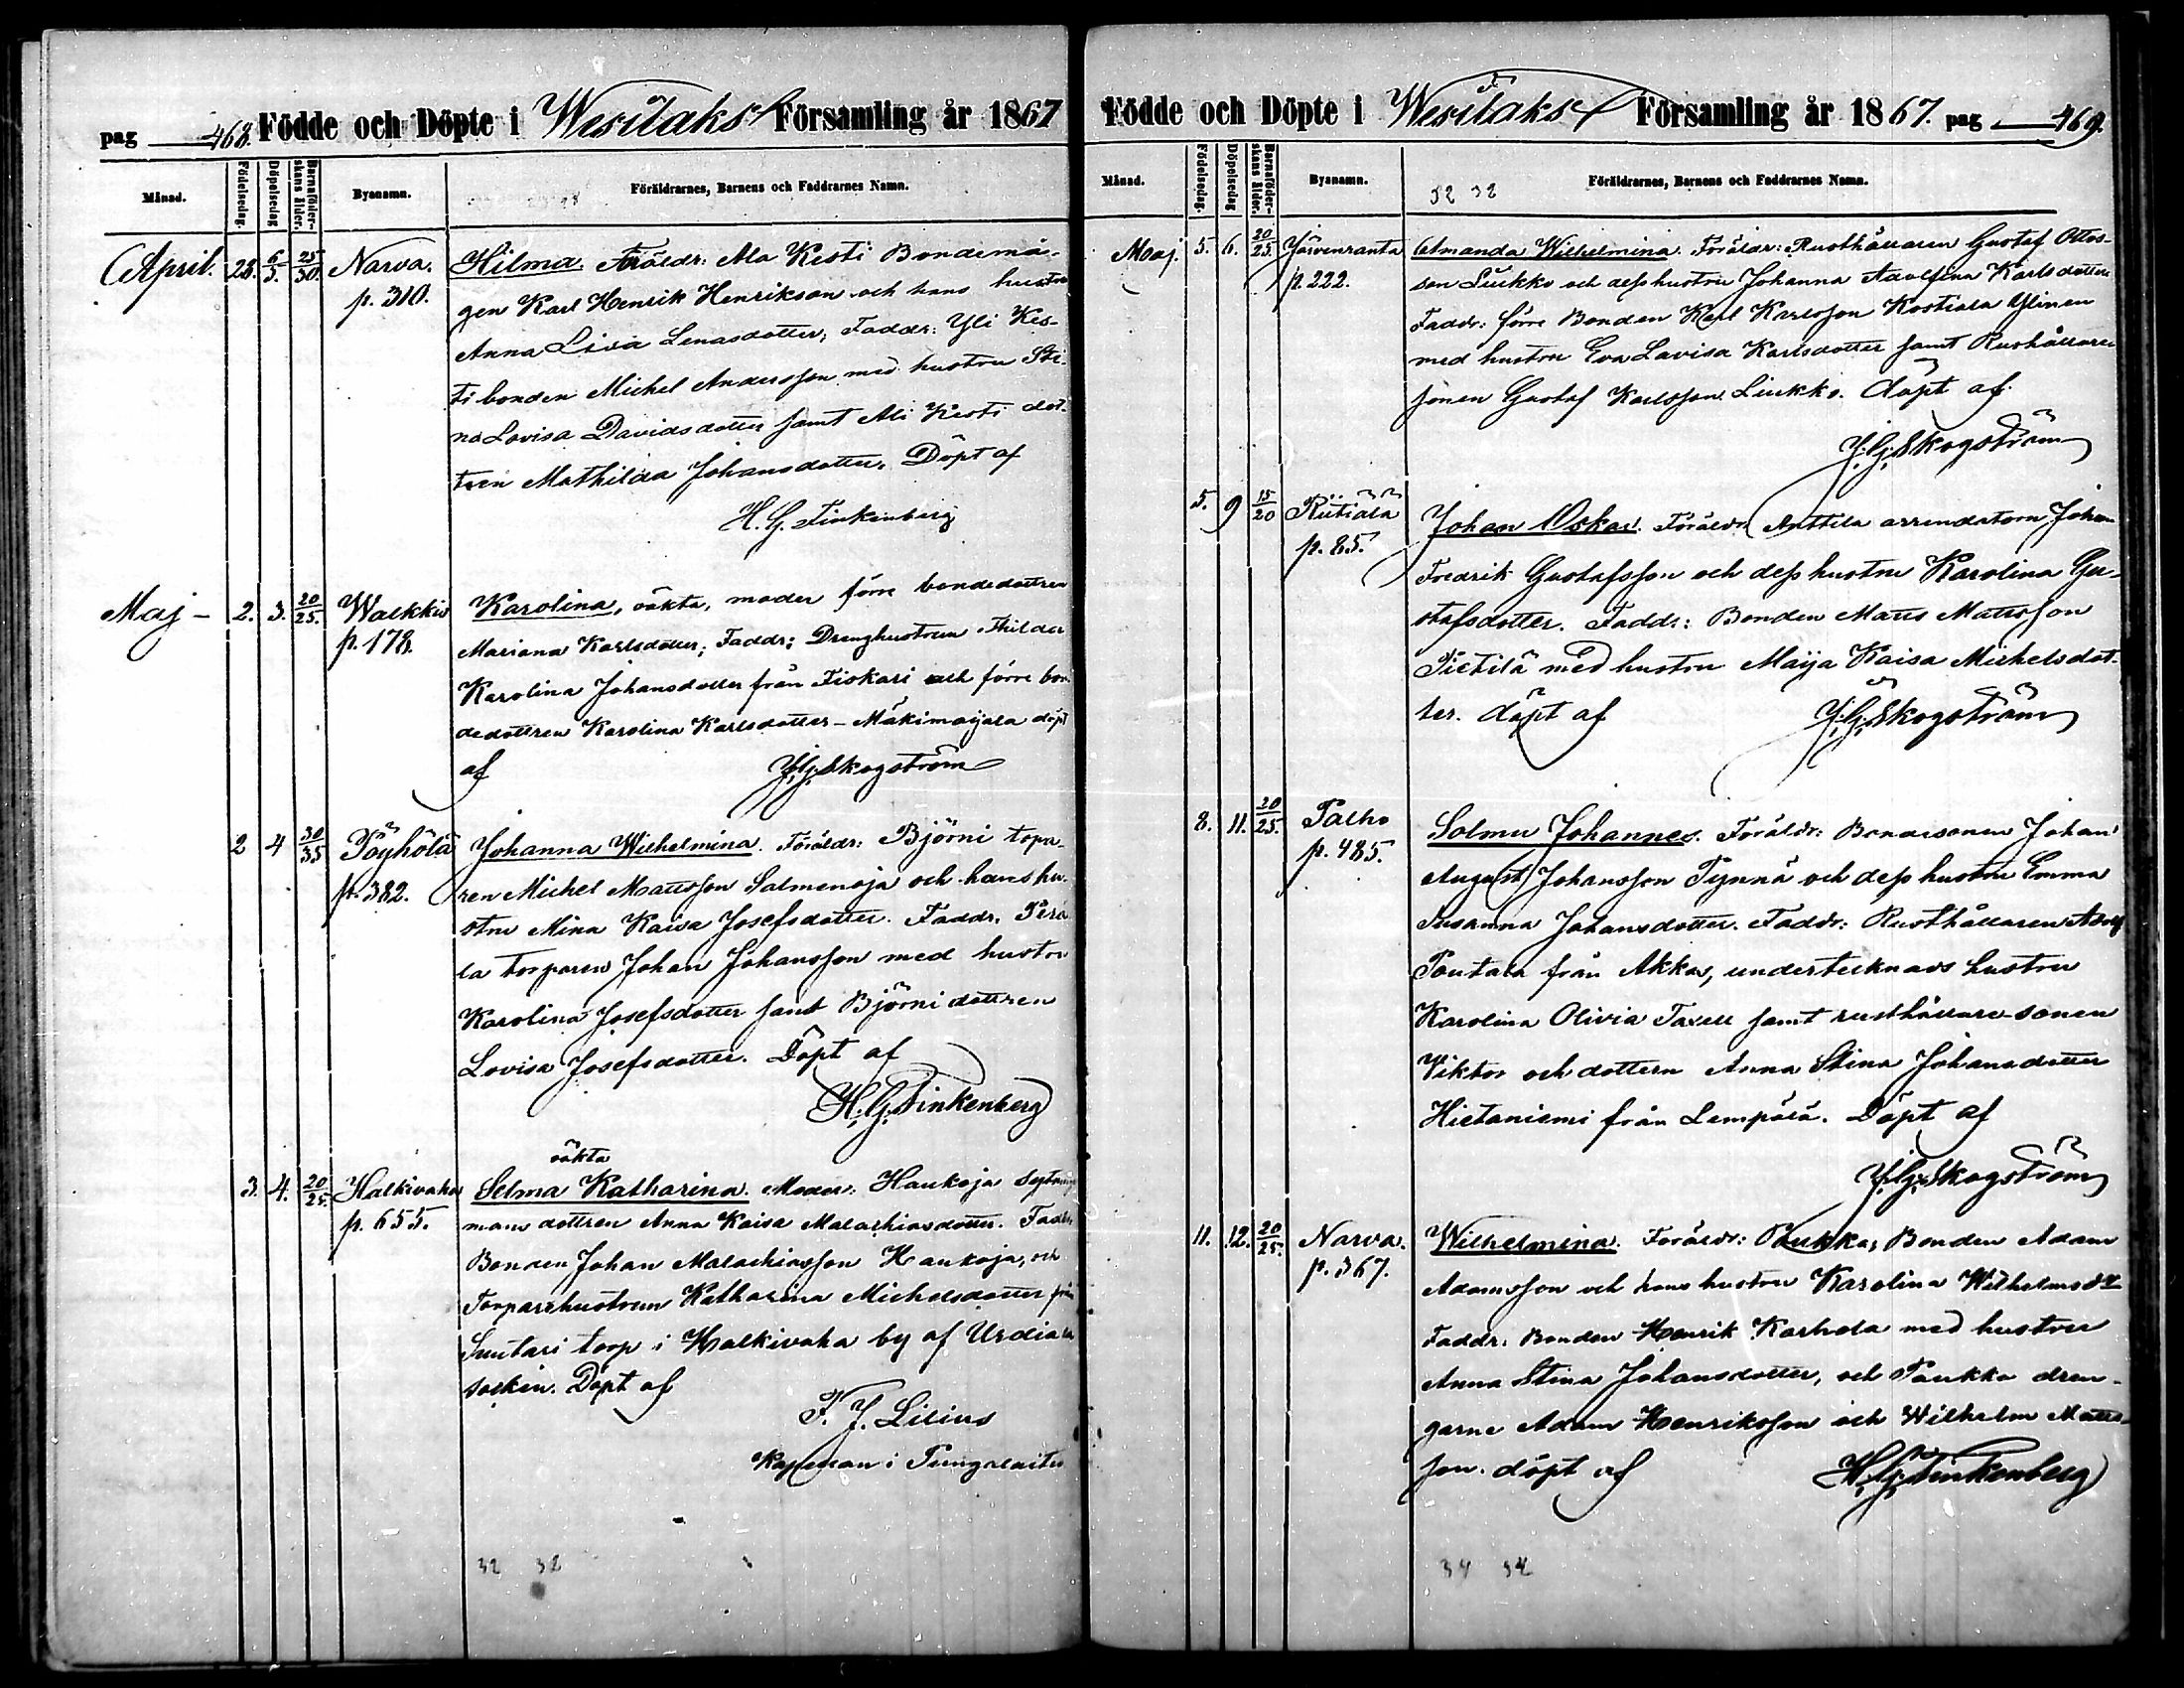 pag 468. Födde och Döpte i Wesilaks Församling år 1867
Månad. Födelsedag. Döpelsedag Barnaföder-skans ålder. Byanamn. Föräldrarnes, Barnens och Faddrarnes Namn.
April. 28. 6/5. 25/30. Narva. Hilma. Föräldr: Ala Kesti Bondemå-
p. 310. gen Karl Henrik Henrikson och hans hustru
Anna Lisa Lenasdotter, Faddr: Yli Kes-
ti bonden Michel Andersson med hustru Sti-
na Lovisa Davidsdotter samt Ali Kesti dot-
tren Mathilda Johansdotter. Döpt af
H. G. Finkenberg
Maj - 2. 3. 20/25. Walkkis Karolina, oäkta, moder förre bondedottren
p. 178. Mariana Karlsdotter; Faddr: Drenghustrun Thilda
Karolina Johansdotter från Tiskari och förre bon-
dedottren Karolina Karlsdotter - Mäkimaijala döpt
af J.G. Skogström
2 4 30/35 Pöyhölä Johanna Wilhelmina. Föräldr: Björni torpa-
p. 382. ren Michel Mattsson Salmenoja och hans hu-
stru Mina Kaisa Josefsdotter. Faddr. Perä
la torparen Johan Johansson med hustru
Karolina Josefsdotter samt Björni dottren
Lovisa Josefsdotter. Döpt af
H. G. Finkenberg
oäkta
3. 4. 20/25. Halkivaha Selma Katharina. Moder: Haukoja
p. 655. mans dottren Anna Kaisa Malachiasdotter. Faddr.
Bonden Johan Malachiasson Haukoja, och
Torparehustrun Katharina Michelsdotter från
Suutari torp i Halkivaha by af Urdiala
socken. Döpt af
F. J. Lilius
Kapellan i Pungalaitio
32 32
Födde och Döpte i Wesilaks Församling år 1867. pag 469.
Månad. Födelsedag. Döpelsedag Barnaföder-skans ålder. Byanamn. Föräldrarnes, Barnens och Faddrarnes Namn.
32 32
Maj. 5. 6. 20/25. Järvenranta Amanda Wilhelmina. Föräldr: Rusthållaren Gustaf Ottos-
p. 222. son Liukko och dess hustru Johanna Adolfina Karlsdotter
Faddr: förre Bonden Karl Karlsson Kostiala Ylinen
med hustru Eva Lovisa Karlsdotter samt Rusthållare
sonen Gustaf Karlsson Liukko. döpt af
J.G. Skogström
5. 9 15/20 Riitiälä Johan Oskar. Föräldr: Anttila arrendatorn Johan
p. 85. Fredrik Gustafsson och dess hustru Karolina Gu-
stafsdotter. Faddr: Bonden Matts Mattsson
Pietilä med hustru Maija Kaisa Michelsdot-
ter. döpt af J.G. Skogström
8. 11. 20/25. Palho Solmu Johannes. Föräldr: Bondesonen Johan
p. 485. August Johansson Pynnä och dess hustru Emma
Susanna Johansdotter. Faddr: Rusthållaren Adolf
Toutala från Akkas, undertecknads hustru
Karolina Olivia Taxell samt rusthållare-sonen
Viktor och dottern Anna Stina Johansdotter
Hietaniemi från Lempälä. Döpt af
J.G. Skogström
11. 12. 20/25. Narva. Wilhelmina. Föräldr: Paukka, Bonden Adam
p. 367. Adamsson och hans hustru Karolina Wilhelmsdr
Faddr. Bonden Henrik Karhola med hustru
Anna Stina Johansdotter, och Paukka dren-
garne Adam Henriksson och Wilhelm Matts-
son. döpt af H.G. Finkenberg
34 34